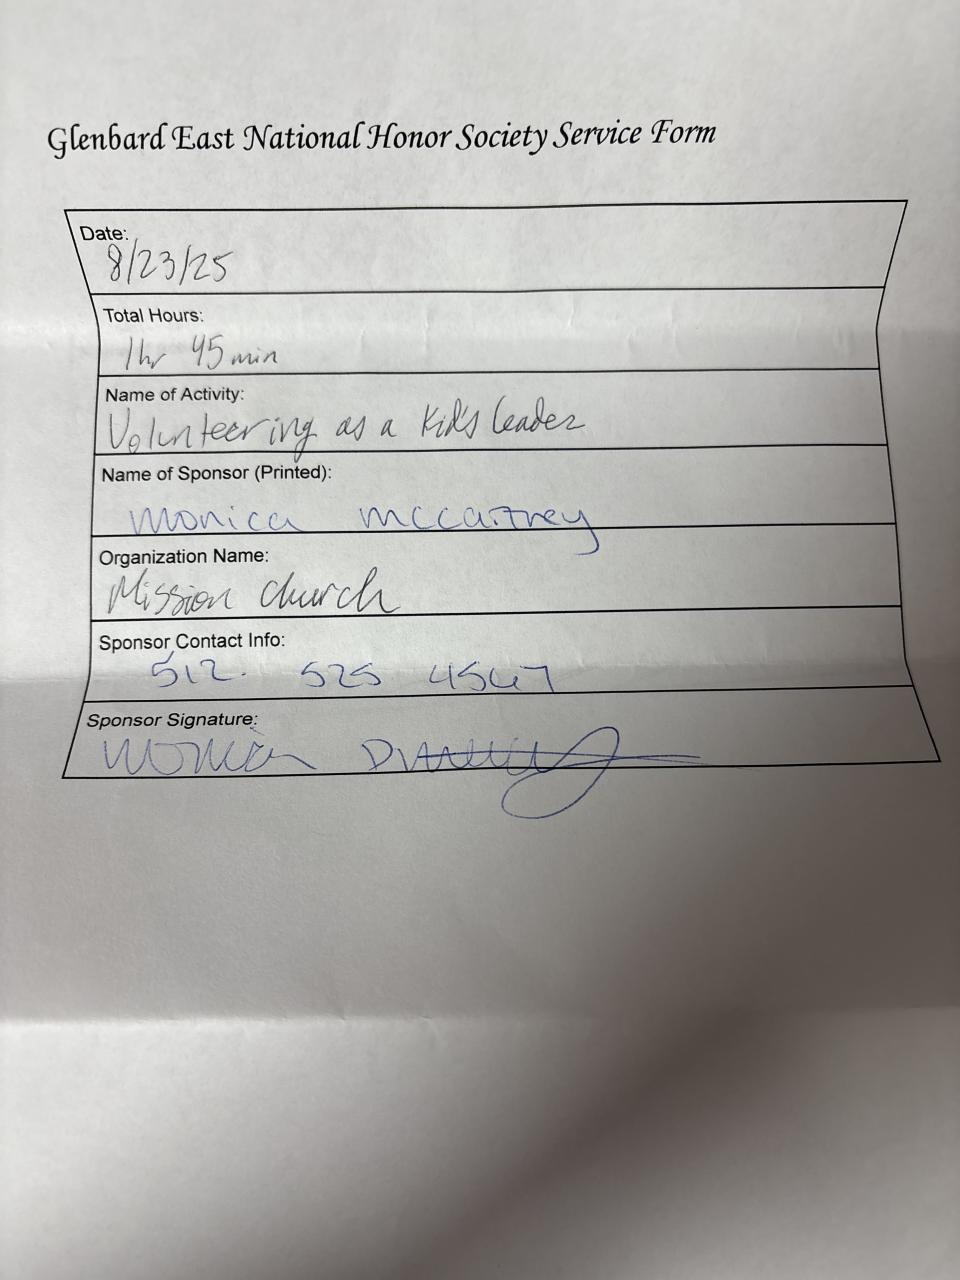 Glenbard East National Honor Society Service Form
Date:
8/23/25
Total Hours:
1hr 45min
Name of Activity:
Volunteering as a Kid's leader
Name of Sponsor (Printed):
Monica McCartney
Organization Name:
Mission Church
Sponsor Contact Info:
512. 525 4567
Sponsor Signature:
Monica